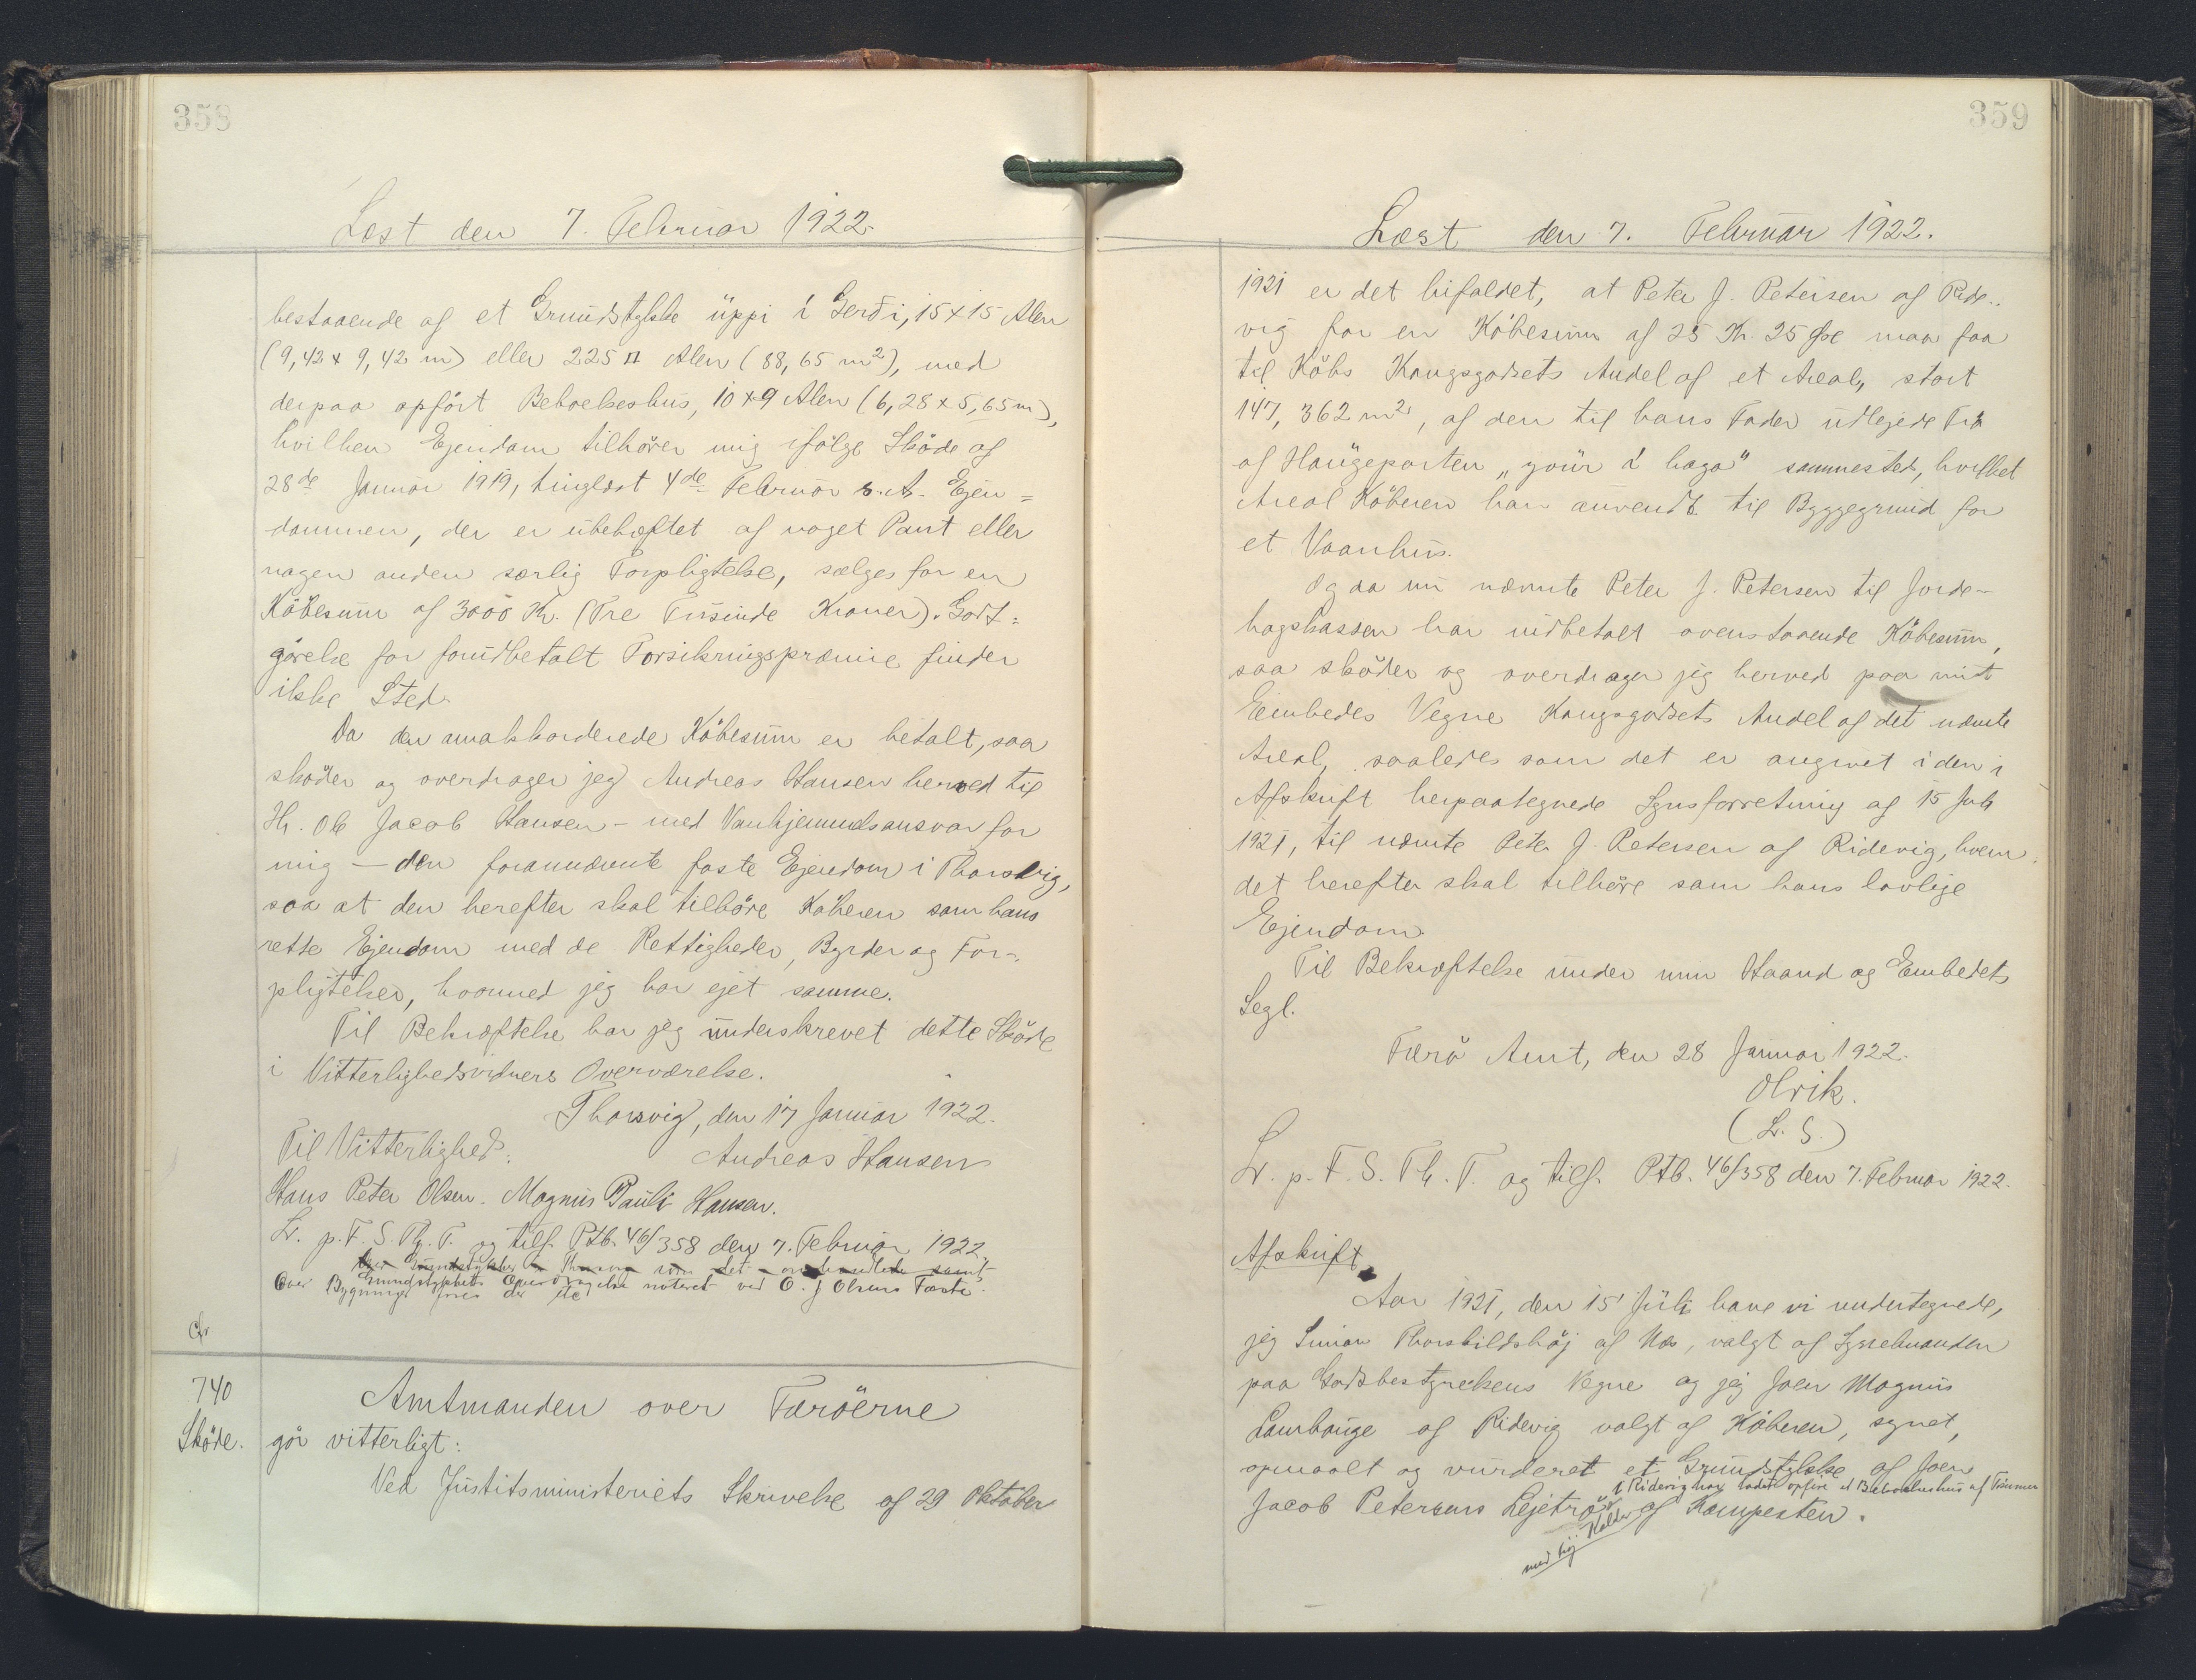 358
Læst den 7. Februar 1922.
bestaaende af et Grundstykke úppi í Gerði, 15 x 15 Alen
(9,42 x 9,42 m) eller 225 □ Alen (88,65 m²), med
derpaa opført Beboelseshus, 10 x 9 Alen (6,28 x 5,65 m),
hvilken Ejendom tilhører mig ifølge Skøde af
28de Januar 1919, tinglæst 4de Februar s. A. Ejen=
dommen, der er ubehæftet af noget Pant eller
nogen anden særlig Forpligtelse, sælges for en
Købesum af 3000 Kr. (Tre Tusinde Kroner). Godt=
gørelse for forudbetalt Forsikringspræmie finder
ikke Sted.
Da den omakkorderede Købesum er betalt, saa
skøder og overdrager jeg Andreas Hansen herved til
Hr. Ole Jacob Hansen – med Vanhjemmelsansvar for
mig – den forannævnte faste Ejendom i Thorsvig,
saa at den herefter skal tilhøre Køberen som hans
rette Ejendom med de Rettigheder, Byrder og For-
pligtelser, hvormed jeg har ejet samme.
Til Bekræftelse har jeg underskrevet dette Skøde
i Vitterlighedsvidners Overværelse.
Thorsvig, den 17 Januar 1922.
Til Vitterlighed: Andreas Hansen
Hans Peter Olsen. Magnus Pauli Hansen.
Lr. p. F. S. Th. T. og tilf. Ptb. 46/358 den 7. Februar 1922.
Grundstykkets Overdragelse noteret ved O. J Olsens Fæste.
Over Bygninger
740
Skøde.
Amtmanden over Færøerne
gør vitterligt:
Ved Justitsministeriets Skrivelse af 29 Oktober
359
Læst den 7. Februar 1922.
1921 er det bifaldet, at Peter J. Petersen af Ride-
vig for en Købesum af 25 Kr. 25 Øre maa faa
til Købs Kongsgodsets Andel af et Areal, stort
147,362 m², af den til hans Fader udlejede Trø
af Haugeparten „ "yvür í haga" sammested, hvilket
Areal Køberen har anvendt til Byggegrund for
et Vaanhus.
Og da nu nævnte Peter J. Petersen til Jorde-
bogskassen har indbetalt ovenstaaende Købesum,
saa skøder og overdrager jeg herved paa mit
Embedes Vegne Kongsgodsets Andel af det nævnte
Areal, saaledes som det er angivet i den i
Afskrift herpaategnede Synsforretning af 15 Juli
1921, til nævnte Peter J. Petersen af Ridevig, hvem
det herefter skal tilhøre som hans lovlige
Ejendom.
Til Bekræftelse under min Haand og Embedets
Segl.
Færø Amt, den 28 Januar 1922.
Olrik.
(L. S.)
Lr. p. F. S. Th. T. og tilf. Ptb. 46/358 den 7. Februar 1922.
Afskrift
Aar 1921, den 15 Juli have vi undertegnede,
jeg Simon Thorkildshøj af Næs, valgt af Sysselmanden
paa Godsbestyrelsens Vegne og jeg Joen Magnus
Lambauge af Ridevig valgt af Køberen, synet,
opmaalt og vurderet et Grundstykke af Joen
i Ridevig har ladet opføre et Beboelseshus af Tømmer
Jacob Petersens Lejetrø af Kampesten.
med høj Kælder